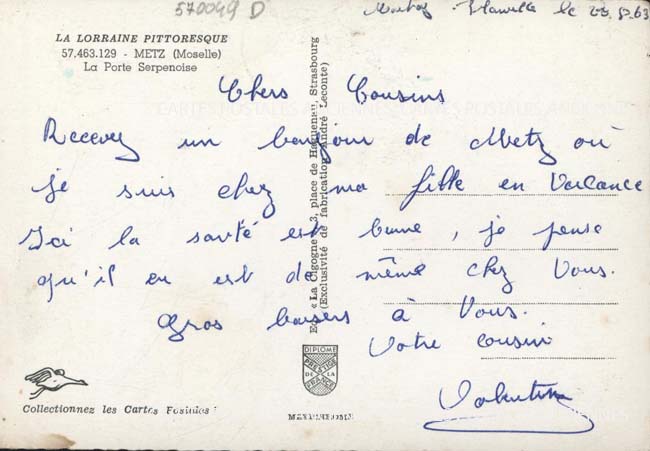 570049 D
le 23.8.63
LA LORRAINE PITTORESQUE
57.463.129 - METZ (Moselle)
La Porte Serpenoise
Chers Cousins
Recevez un bonjour de Metz où
je suis chez ma fille en Vacance
Ici la santé est bonne, je pense
qu'il en est de même chez Vous.
Gros baisers à Vous.
Votre cousin
Valentin
« La Cigogne », 3, place de Haguenau, Strasbourg
(Exclusivité de fabrication André Leconte)
DIPLOME
PRESTIGE
DE LA
FRANCE
Collectionnez les Cartes Postales !